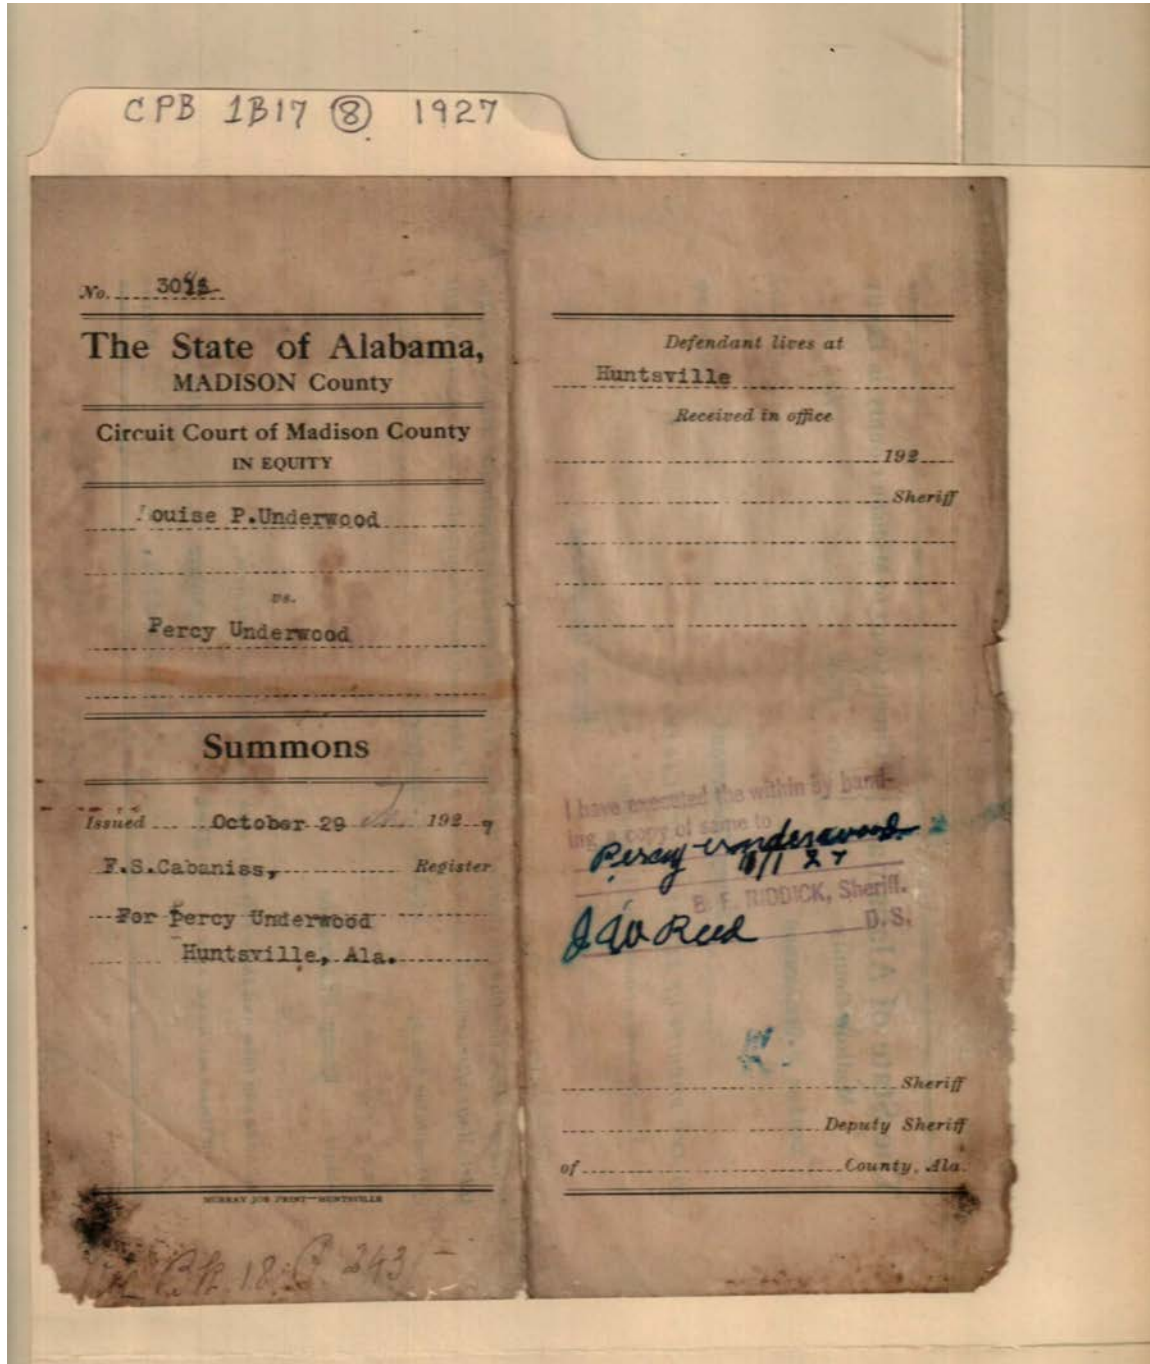 CPB 1B17 8 1927
No.
The State of Alabama,
MADISON County
Circuit Court of Madison County
IN EQUITY
ouise P.Underwood
vs.
Percy Underwood
Summons
Issued October 29 192 7
F.S.Cabaniss, Register
For Percy Underwood
Huntsville, Ala.
MURRAY JOB PRINT—HUNTSVILLE
18 243
Defendant lives at
Huntsville
Received in office
192
Sheriff
I have executed the within by hand-
ing a copy of same to
Percy Underwood
B. F. RIDDICK, Sheriff.
Reed D.S.
Sheriff
Deputy Sheriff
of County, Ala.